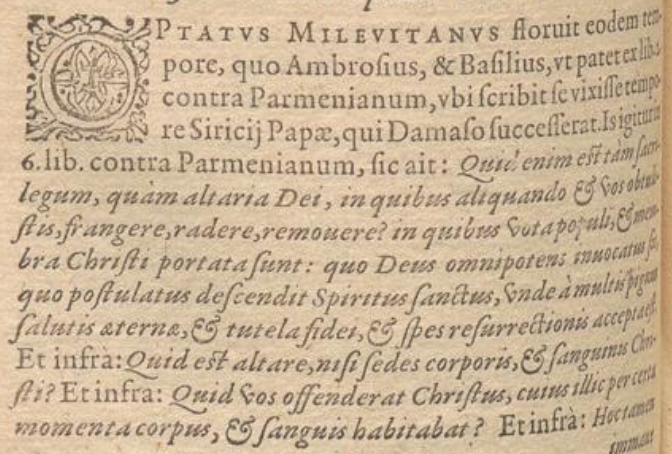 OPTATVS MILEVITANVS floruit eodem tem
pore, quo Ambrosius, & Basilius, vt patet ex lib. 2
contra Parmenianum, vbi scribit se vixisse tempo
re Siricij Papæ, qui Damaso successerat. Is igitur
6. lib. contra Parmenianum, sic ait: Quid enim est tàm sacri-
legum, quàm altaria Dei, in quibus aliquando & vos obtuli-
stis, frangere, radere, remouere? in quibus vota populi, & mem-
bra Christi portata sunt: quo Deus omnipotens inuocatus sit,
quo postulatus descendit Spiritus sanctus, vnde à multis pignus
salutis æternæ, & tutela fidei, & spes resurrectionis accepta est.
Et infra: Quid est altare, nisi sedes corporis, & sanguinis Chri-
sti? Et infra: Quid vos offenderat Christus, cuius illic per certa
momenta corpus, & sanguis habitabat? Et infrà: Hoc tamen
immane